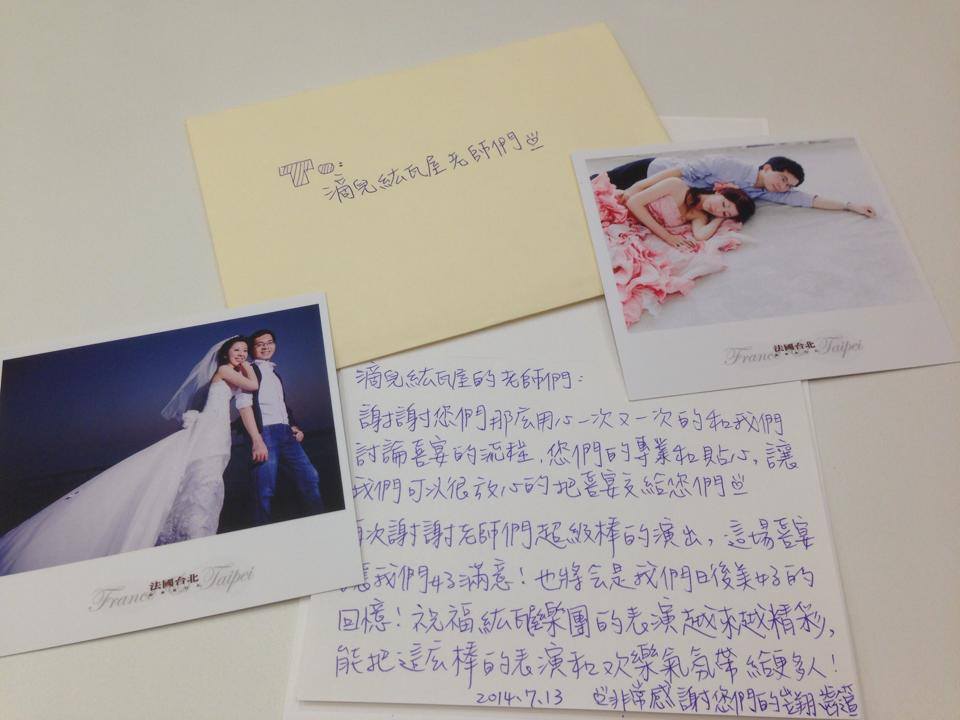 To:
滴兒紘瓦屋老師們
法國台北
France Taipei
法國台北
France Taipei
滴兒紘瓦屋的老師們:
謝謝您們那麼用心一次又一次的和我們
討論喜宴的流程,您們的專業和貼心,讓
我們可以很放心的把喜宴交給您們
再次謝謝老師們超級棒的演出,這場喜宴
讓我們好滿意!也將会是我們日後美好的
回憶!祝福紘瓦屋樂團的表演越來越精彩,
能把這麼棒的表演和欢樂氣氛帶給更多人!
2014.7.13 非常感謝您們的